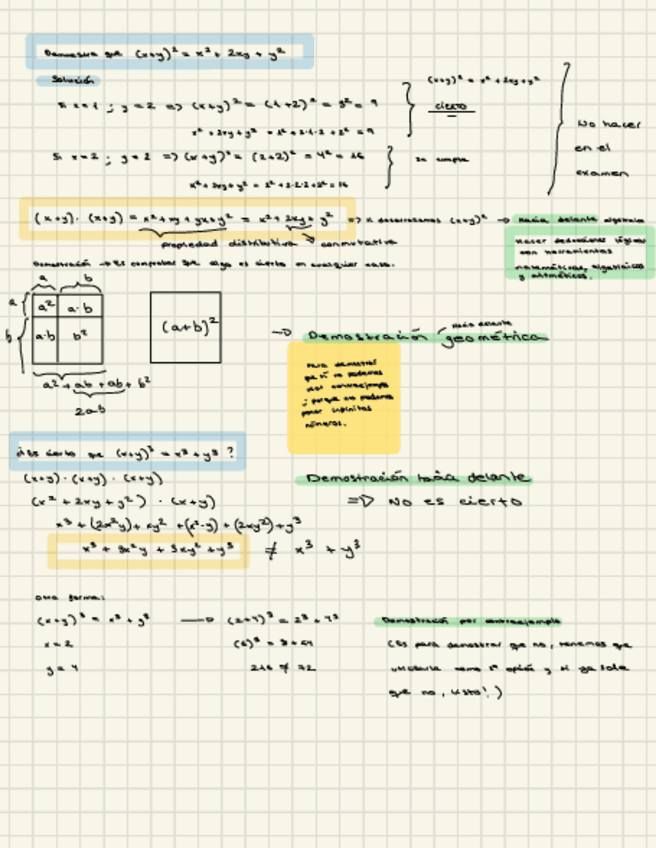 Demuestra que (x+y)² = x² + 2xy + y²
Solución
Si x=1 ; y=2 => (x+y)² = (1+2)² = 3² = 9
x² + 2xy + y² = 1² + 2·1·2 + 2² = 9
(x+y)² = x² + 2xy + y²
cierto
Si x=2 ; y=2 => (x+y)² = (2+2)² = 4² = 16
x² + 2xy + y² = 2² + 2·2·2 + 2² = 16
se cumple
No hacer
en el
examen
(x+y)·(x+y) = x² + xy + yx + y² = x² + 2xy + y² => desarrollamos (x+y)² → Hacia delante
propiedad distributiva → conmutativa
hacer deducciones lógicas
con herramientas
matemáticas, algebraicas
y aritméticas.
Demostración → Es comprobar que algo es cierto en cualquier caso.
a b
a a² a·b
b a·b b²
(a+b)²
a² + ab + ab + b²
2ab
→ Demostración geométrica
hacia delante
Para demostrar
que sí no podemos
usar contraejemplo
; porque no podemos
poner infinitos
números.
¿Es cierto que (x+y)³ = x³ + y³ ?
(x+y)·(x+y)·(x+y)
(x² + 2xy + y²) · (x+y)
x³ + (2x²y) + xy² + (x²·y) + (2xy²) + y³
x³ + 3x²y + 3xy² + y³ ≠ x³ + y³
Demostración hacia delante
=> No es cierto
Otra forma:
(x+y)³ = x³ + y³ → (2+4)³ = 2³ + 4³
x=2 (6)³ = 8 + 64
y=4 216 ≠ 72
Demostración por contraejemplo
(Es para demostrar que no, tenemos que
utilizarla como 1ª opción y si ya sale
que no, listo!)